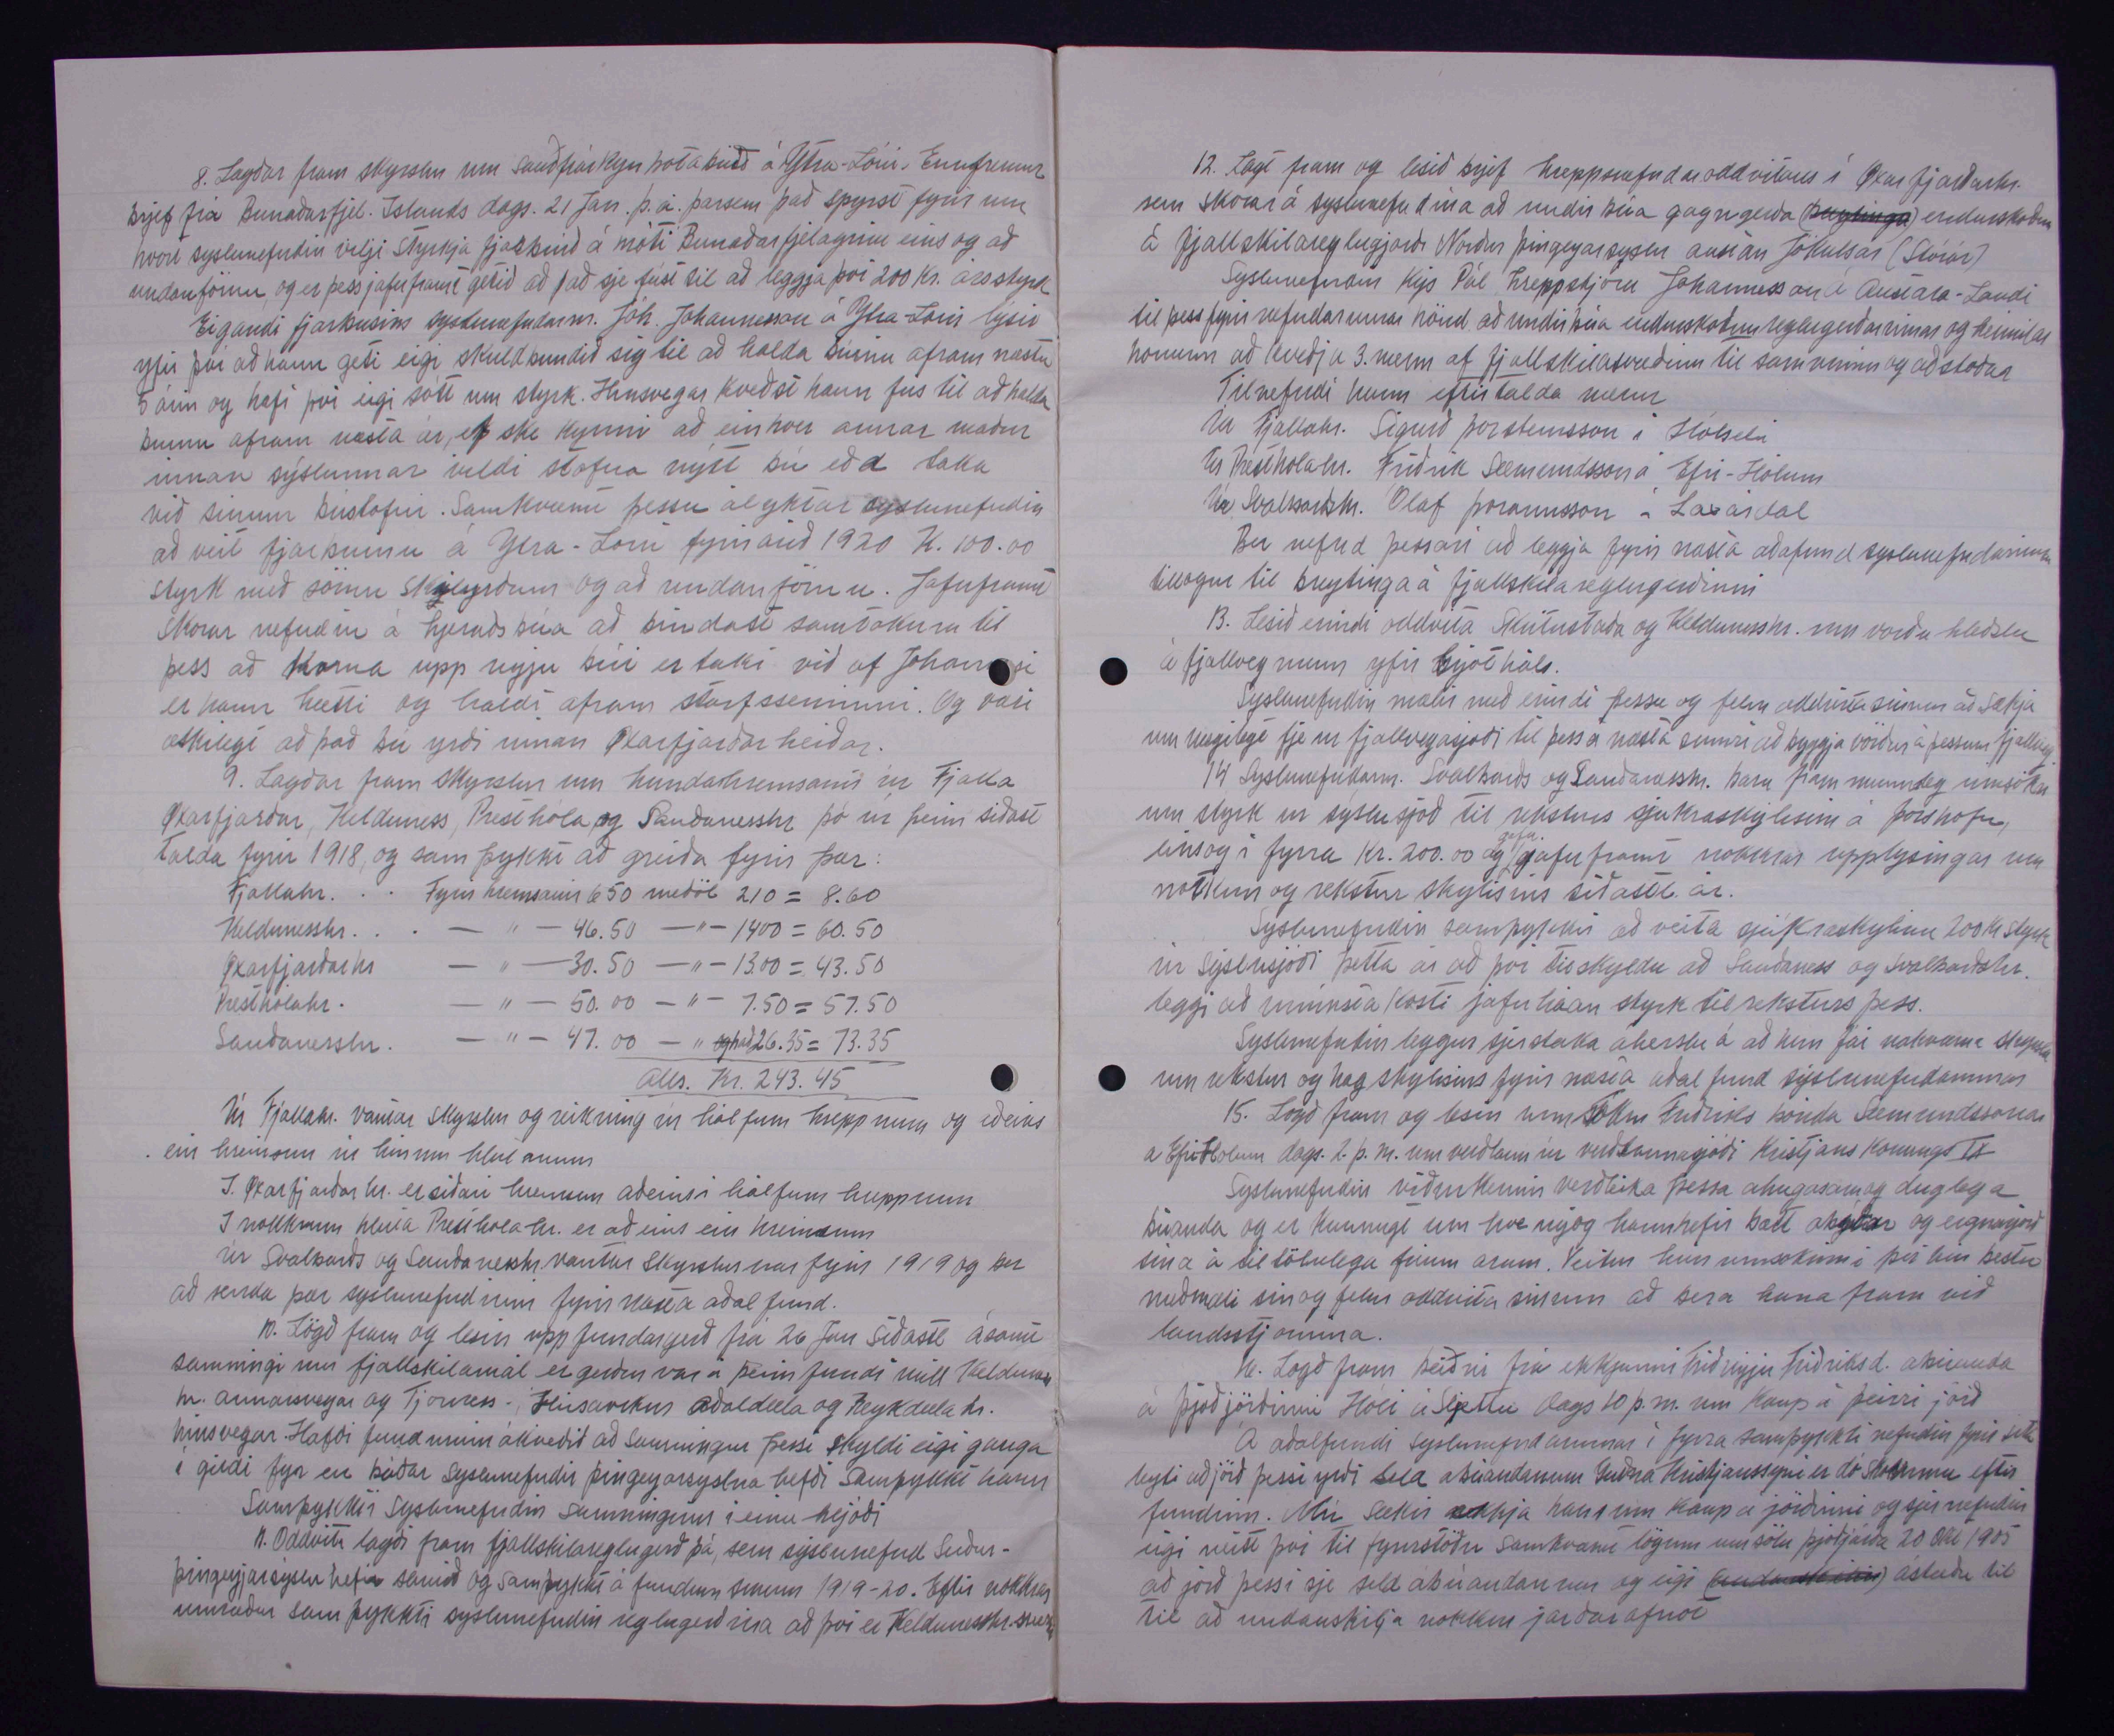 8. Lagdar fram skyrslur um Saudfjárkynbótabuið á Ytra-Lóni. Ennfremur
brjef frá Bunadarfjel. Islands dags. 21 Jan. þ.á. þarsem það spyrst fyrir um
hvort syslunefndin vilji Styrkja fjárbuid á móti Bunadarfjelaginu eins og ad
undanförnu, og er þess jafnframt getid ad það sje fúst til ad leggja því 200 Kr. ársstyrk
Eigandi fjárbusins syslunefndarm. Jóh. Johannesson á Ytra-Lóni lysir
yfir því að hann geti eigi skuldbundid sig til að halda búinu áfram næstu
5 árin og hafi því eigi sótt um styrk. Hinsvegar kvedst hann fus til að halda
buinu áfram næsta ár, ef ske kynni að einhver annar madur
innan sýslunnar vildi stofna nýtt bú eda taka
vid sinum bústofni. Samkvæmt þessu ályktar syslunefndin
ad veit fjárbuinu á Ytra-Lóni fyrir árid 1920 K. 100.00
styrk med sömu skilyrdum og ad undanförnu. Jafnframt
Skorar nefndin á hjeradsbúa að bindast samtökum til
þess ad koma upp nyju búi er taki vid af Jóhannesi
er hann hætti og haldi áfram starfsseminni. Og væri
æskilegt að það bú yrdi innan Øxarfjardarheidar.
9. Lagdar fram skyrslur um hundahreinsanir úr Fjalla
Øxarfjardar, Kelduness, Presthóla og Saudanesshr þó úr þeim sidast
talda fyrir 1918, og samþykkt að greida fyrir þær:
Fjallahr. . . Fyrir hreinsanir 6 50 medöl 210 = 8.60
Keldunesshr. . . — " — 46.50 — " — 1400 = 60.50
Øxarfjardarhr — " — 30.50 — " — 13.00 = 43.50
Presthólahr. — " — 50.00 — " — 7.50 = 57.50
Saudanesshr. — " — 47.00 — " 26.35 = 73.35
Alls. Kr. 243.45
Úr Fjallahr. vantar skyrslur og reikning úr hálfum hreppnum og adeins
ein hreinsun úr hinum hlutanum
I. Øxarfjardarhr. er sidari hreinsun adeins i hálfum hreppnum
I nokkrum hluta Presthólahr. er ad eins ein hreinsun
úr Svalbards og Saudanesshr. vantar Skyrslurnar fyrir 1919 og ber
ad senda þær syslunefndinni fyrir næsta adalfund.
10. Lögd fram og lesin upp fundargerd frá 26 Jan Sidastl ásamt
samningi um fjallskilamál er gerdur var á þeim fundi milli Kelduness
hr. annarsvegar og Tjörness-, Húsavíkur Adaldæla og Reykdæla hr.
hinsvegar. Hafdi fundurinn ákvedid að Samningur þessi skyldi eigi ganga
i gildi fyr en bádar syslunefndir þingeyjarsyslna hefdi samþykkt hann
Samþykkir Syslunefndin samninginn i einu hljódi
11. Oddviti lagdi fram fjallskilareglugerd þá, sem syslunefnd Sudur-
þingeyjarsyslu hefir samid og samþykkt á fundum sinum 1919-20. Eftir nokkrar
umrædur samþykkti syslunefndin reglugerdina ad því er Keldunesshr. snertir
12. Lagt fram og lesid brjef hreppsnefndaroddvitans i Øxarfjardarhr.
sem skorar á syslunefndina ad undirbúa gagngerda (breytinga) endurskodun
á fjallskilareglugjörd Nordur þingeyarsyslu austan Jökulsár (Stórár)
Syslunefndin kys Pál hreppstjóra Johannesson á Austara-Landi
til þess fyrir nefndarinnar hönd ad undirbúa endurskodun reglugerdarinnar og heimilar
honum ad kvedja 3. menn af fjallskilasvædinu til samvinnu og adstodar
Tilnefndi hann eftirtalda menn
Úr Fjallahr. Sigurd þorsteinsson i Hólseli
Úr Presthólahr. Fridrik Sæmundsson á Efri-Hólum
Úr Svalbardshr. Olaf þórarinsson i Laxárdal
Ber nefnd þessari ad leggja fyrir næsta adafund syslunefndarinnar
tillögur til breytinga á fjallskilareglugerdinni
13. Lesid erindi oddvita Skútustada og Keldunesshr. um vörduhledslu
á fjallveginum yfir Grjótháls.
Syslunefndin mælir med erindi þessu og felur oddvita sinum ad Sækja
um nægilegt fje úr fjallvegasjodi til þess á næsta sumri ad byggja vördur á þessum fjallvegi
14 Syslunefndarm. Svalbards og Saudanesshr. bera fram munnleg umsókn
um styrk úr syslusjod til reksturs sjukraskylisins á þórshöfn,
einsog i fyrra Kr. 200.00 og gefa jafnframt nokkrar upplysingar um
notkun og rekstur skylisins sidastl. ár.
Syslunefndin samþykkir ad veita sjúkraskylinu 200 K styrk
úr Syslusjodi þetta ár ad því tilskyldu ad Saudaness og Svalbardshr.
leggi ad minnsta kosti jafnháan styrk til reksturs þess.
Syslunefndin leggur sjerstaka áherslu á ad hun fái nákvæma skyrslu
um rekstur og hag skylisins fyrir næsta adal fund syslunefndarinnar
15. Lögd fram og lesin umsókn Fridriks bónda Sæmundssonar
á Efri Hólum dags. 2. þ.m. um verdlaun úr verdlaunasjódi Kristjans Konungs IX
Syslunefndin vidurkennir verdleika þessa áhugasama og duglega
búanda og er kunnugt um hve mjög hann hefir bætt ábydar og eignarjörd
sina á tiltölulega fáum árum. Veitir hun umsokninni því hin bestu
medmæli sin og felur oddvita sinum ad bera hana fram vid
landsstjornina.
16. Lögd fram beidni frá ekkjunni Fridnyju Fridriksd. ábúanda
á þjódjördinni Hóli á Sljettu dags 10 þ.m. um kaup á þeirri jörd
Á adalfundi syslunefndarinnar i fyrra samþykkti nefndin fyrir sitt
leyti ad jörd þessi yrdi seld ábúandanum Gudna Kristjanssyni er dó skömmu eftir
fundinn. Nú sækir ekkja hans um kaup á jördinni og sjer nefndin
eigi neitt því til fyrirstödu samkvæmt lögum um sölu þjódjarda 20 Okt 1905
ad jörd þessi sje seld ábúandanum og eigi ástædu til
til ad undanskilja nokkur jardarafnot